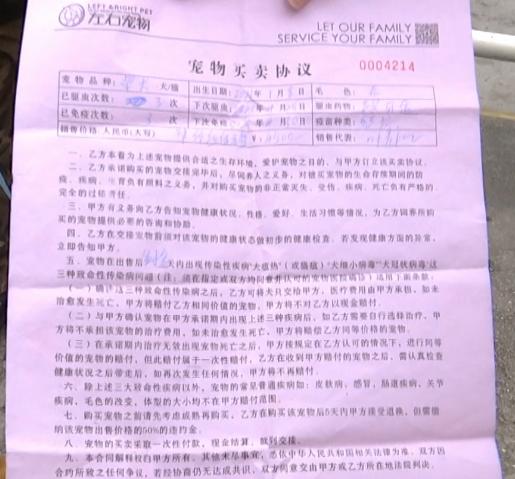 LEFT&RIGHT PET
左右宠物
LET OUR FAMILY
SERVICE YOUR FAMILY
宠物买卖协议
0004214
宠物品种: 犬/猫 出生日期: 年 月 日 毛 色:
已驱虫次数: 次 下次驱虫: 年 月 日 驱虫药物:
已免疫次数: 3 次 下次免疫: 年 月 日 疫苗种类:
销售价格 人民币(大写) ¥: 销售代表:
一、乙方本着为上述宠物提供合适之生存环境,爱护宠物之目的,与甲方订立该买卖协议。
二、乙方承诺购买的宠物交接完毕后,尽饲养人之义务,对楼买宠物的生命存续期间的防
疫、疾病、生育负有照料之义务,并对购买宠物的非正常丢失、受伤、疾病、死亡负有严格的
完全的过错责任。
三、甲方有义务向乙方告知宠物健康状况、性格、爱好、生活习惯等情况,为乙方饲养所购
买的宠物提供必要的咨询和协助。
四、乙方在交接宠物前须对该宠物的健康状态做初步的健康检查。若发现健康方面的异常,
立即告知甲方。
五、宠物在出售后 天内出现传染性疾病"犬瘟热"(或猫瘟)"犬细小病毒""犬冠状病毒"这
三种致命性传染病问题(注:须在指定或双方均同意并认可的宠物医院确诊)适用下面条款:
(一)确诊这三种致命性传染病之后,乙方可将犬只交给甲方,医疗费用由甲方承担,如未
治愈发生死亡,甲方将赔付乙方相同价值的宠物,甲方将不对乙方以现金赔付。
(二)与甲方确认宠物在甲方承诺期内出现上述三种疾病后,如乙方需要自行选择治疗,甲
方将不承担该宠物的治疗费用,如未治愈发生死亡,甲方将赔偿乙方同等价格的宠物。
(三)在承诺期内治疗无效出现宠物死亡之后,甲方按规定在乙方认可的情况下,进行同等
价值的宠物的赔付,但此赔付属于一次性赔付,乙方在收到甲方赔付的宠物之后,需认真检查
健康状况之后带走后,如再次发生任何情况,甲方将不再赔付。
六、除上述三大致命性疾病以外,宠物的常见普通疾病如:皮肤病,感冒,肠道疾病,关节
疾病,毛色的改变,体型的大小均不在甲方赔付范围。
七、购买宠物之前请先考虑成熟再购买,乙方在购买该宠物后5天内甲方接受退换,但需缴
纳该宠物出售价格的50%的违约金。
八、宠物的买卖采取一次性付款,现金结算,款到交接。
九、本合同解释权归甲方所有。其他未尽事宜,悉依中华人民共和国相关法律为准。双方因
合约所致之任何争议,若经协商仍无达成共识,双方同意交由甲方或乙方所在地法院判决。